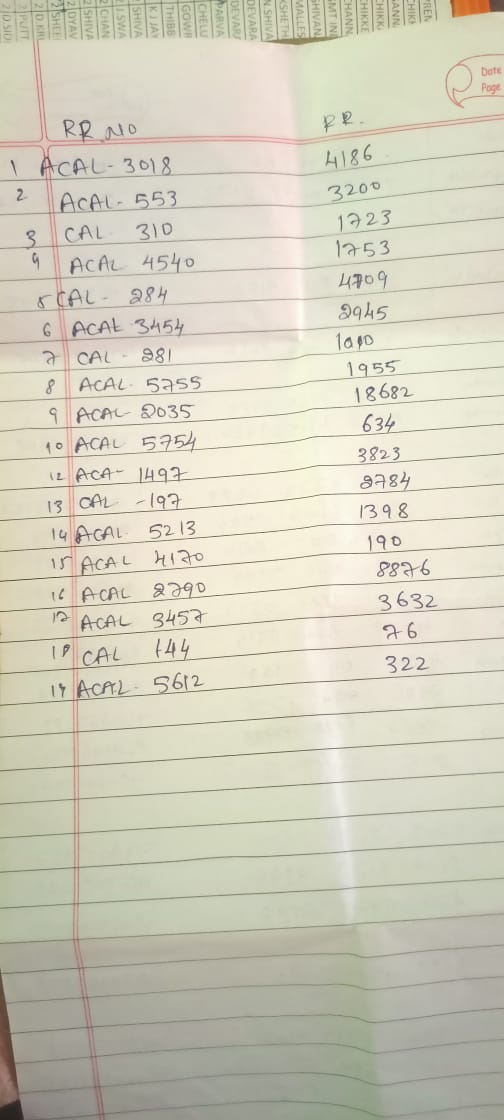 Date
Page
RR NO RR.
1 ACAL- 3018 4186
2 ACAL- 553 3200
3 CAL 310 1723
4 ACAL 4540 1753
5 CAL- 284 4709
6 ACAL 3454 2945
7 CAL - 281
8 ACAL. 5755 1955
9 ACAL- 2035 18682
10 ACAL 5754 634
12 ACA- 1497 3823
13 CAL -197 2784
14 ACAL. 5213 1398
15 ACAL 4170 190
16 ACAL 2790 8876
17 ACAL 3457 3632
18 CAL 144 76
19 ACAL- 5612 322